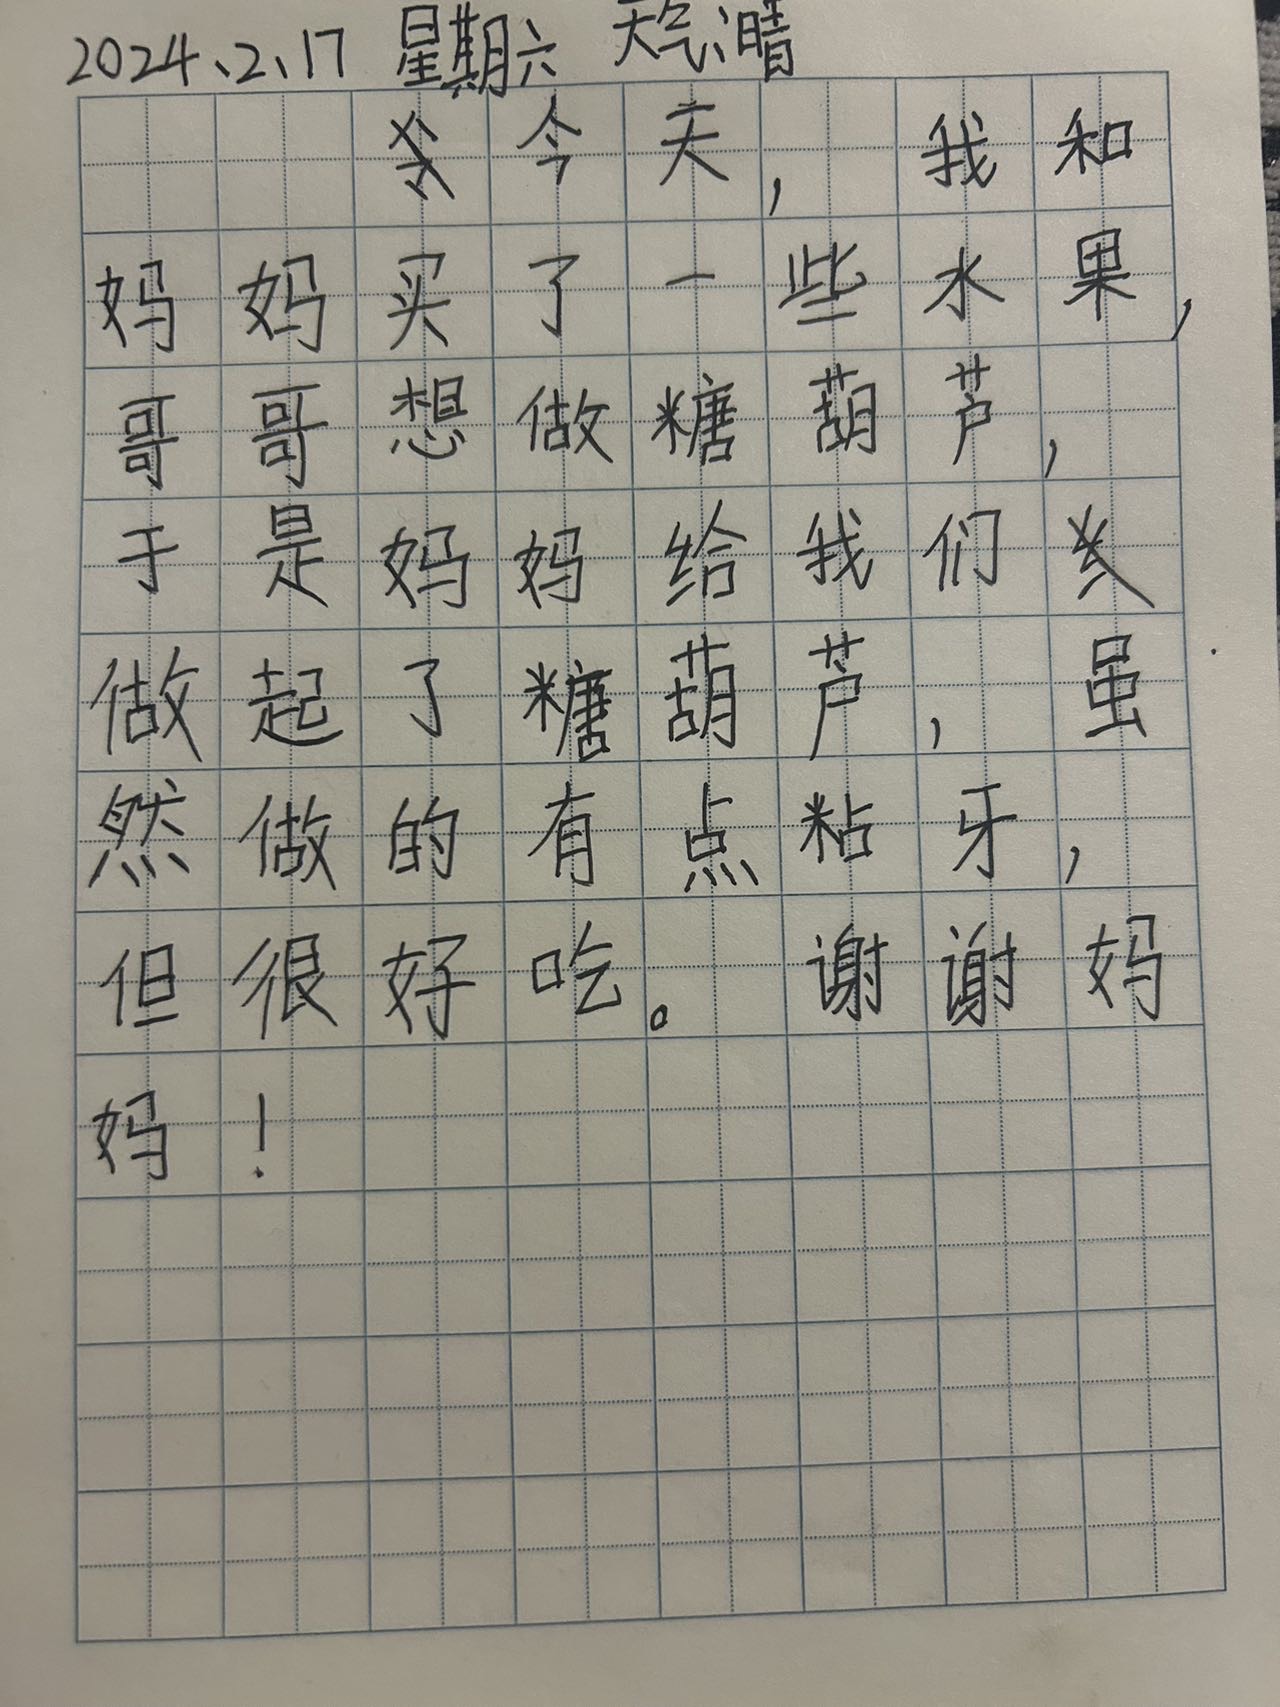 2024、2、17 星期六 天气:晴
今天,我和
妈妈买了一些水果,
哥哥想做糖葫芦,
于是妈妈给我们
做起了糖葫芦,虽
然做的有点粘牙,
但很好吃。谢谢妈
妈!